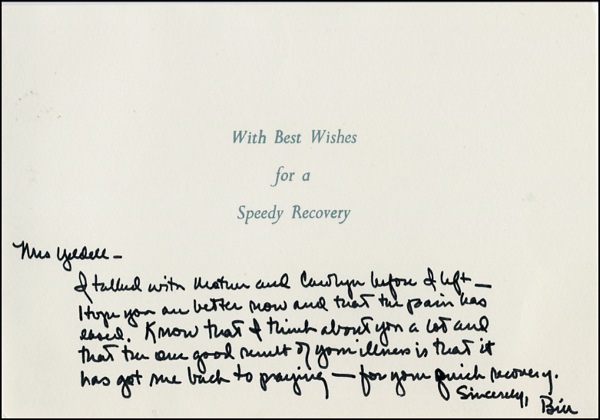 With Best Wishes
for a
Speedy Recovery
Mrs Yeldell –
I talked with Mother and Carolyn before I left –
I hope you are better now and that the pain has
eased. Know that I think about you a lot and
that the one good result of your illness is that it
has got me back to praying – for your quick recovery.
Sincerely,
Bill